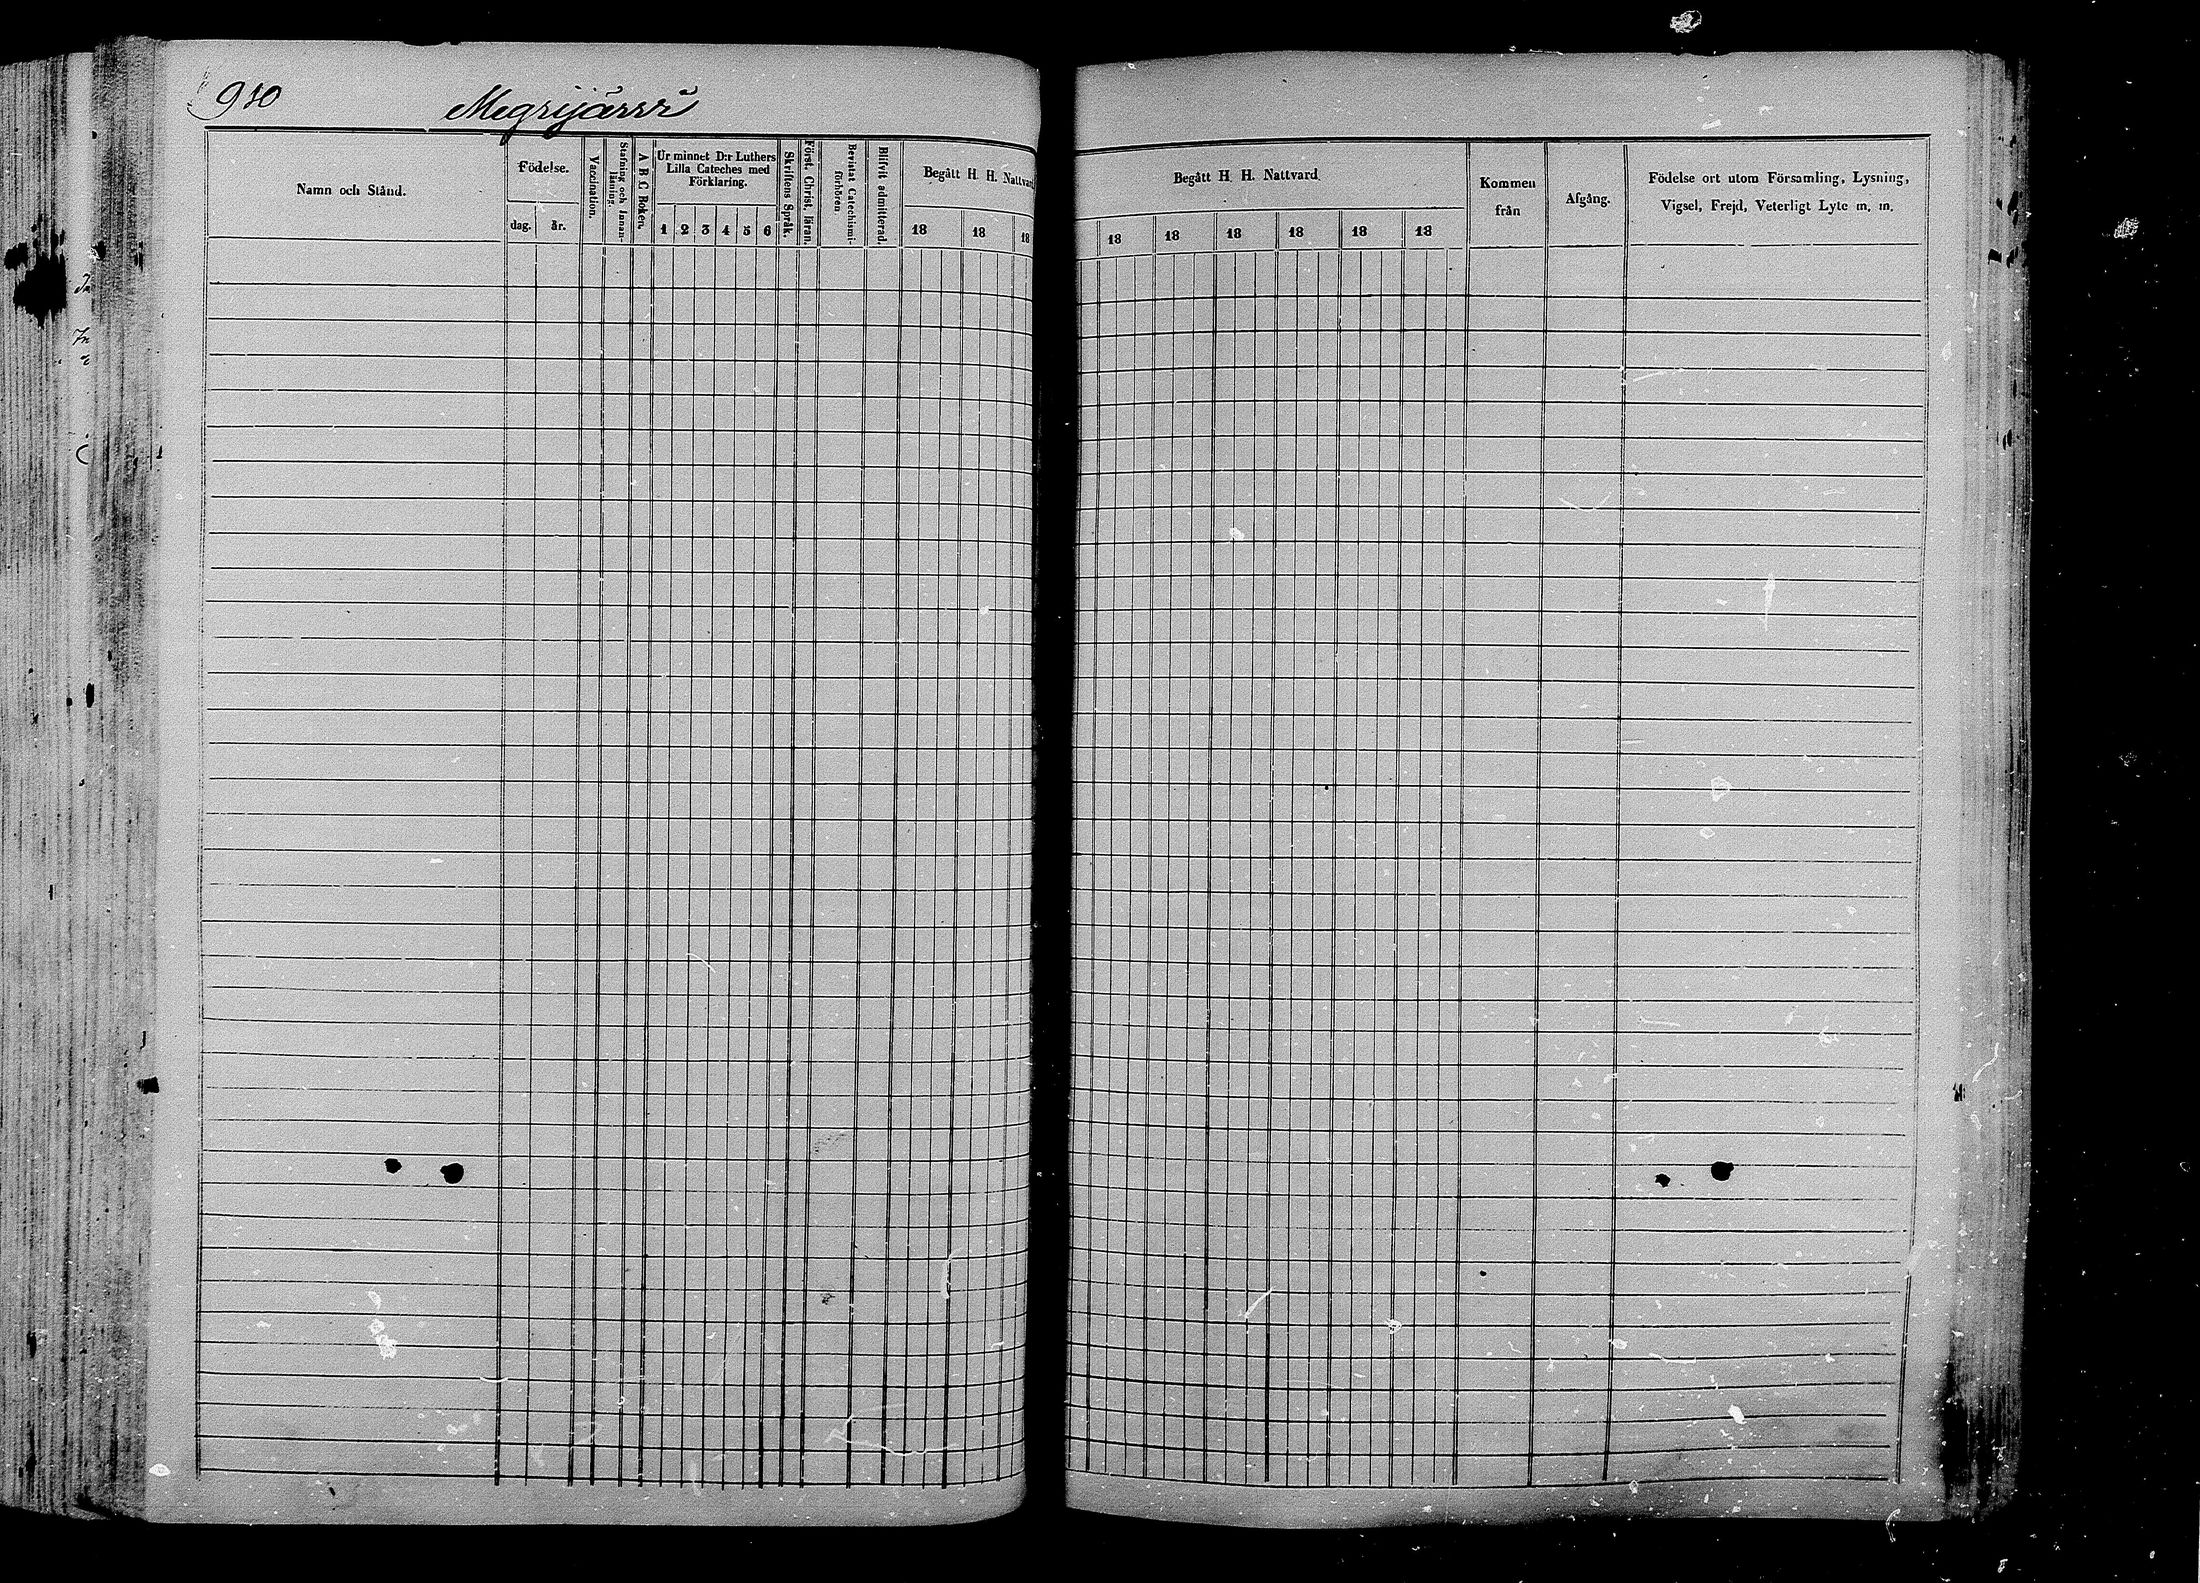 910
Megrijärvi
Namn och Stånd.
Födelse.
dag. år.
Vaccination.
Stafning och Innan-
läsning.
A B C Boken.
Ur minnet D:r Luthers
Lilla Cateches med
Förklaring.
1 2 3 4 5 6
Skriftens Språk.
Först. Christ. läran.
Bevistat Catechismi-
förhören
Blifvit admitterad.
Begått H. H. Nattvard
18 18 18
Begått H. H. Nattvard
18 18 18 18 18 18
Kommen
från
Afgång.
Födelse ort utom Församling, Lysning,
Vigsel, Frejd, Veterligt Lyte m. m.